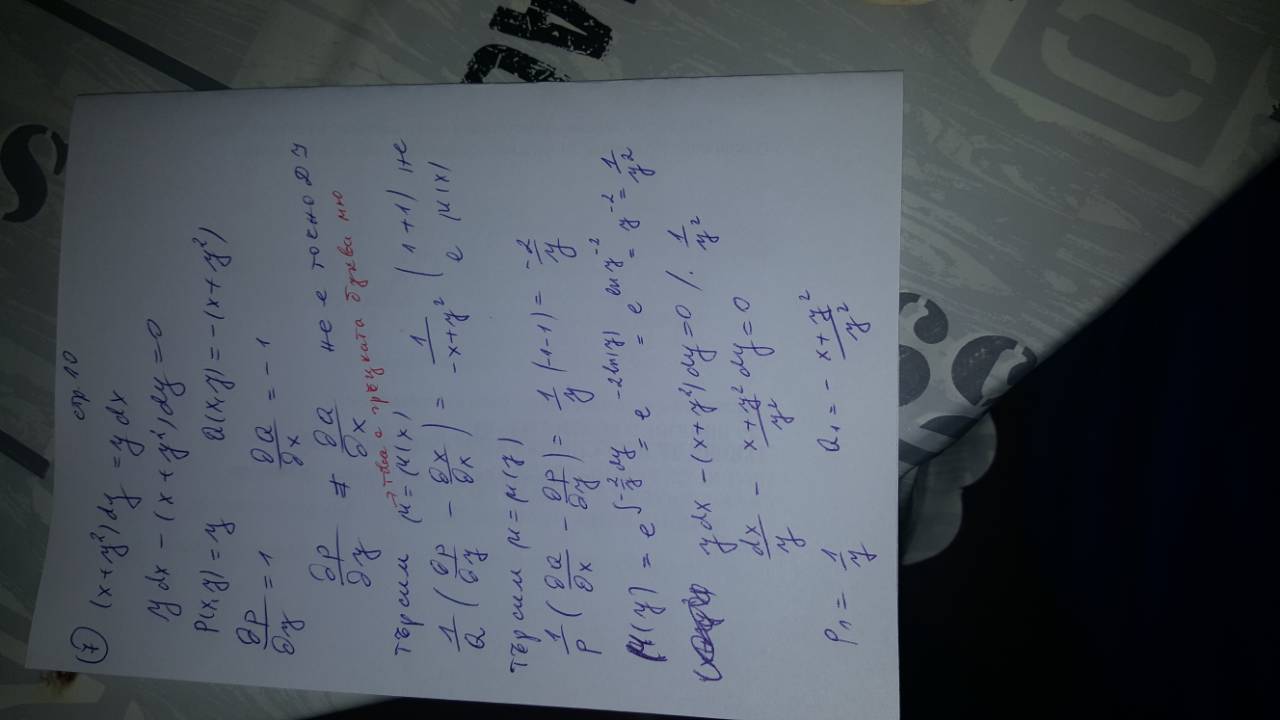 стр. 10
(7) (x+y²)dy = y dx
y dx - (x+y²)dy = 0
P(x,y) = y Q(x,y) = -(x+y²)
∂P/∂y = 1 ∂Q/∂x = -1
∂P/∂y ≠ ∂Q/∂x не е точно ДУ
→ това е гръцката буква мю
Търсим μ = μ(x)
1/Q (∂P/∂y - ∂x/∂x) = 1/(-x+y²) (1+1) не е μ(x)
Търсим μ = μ(y)
1/P (∂Q/∂x - ∂P/∂y) = 1/y (-1-1) = -2/y
μ(y) = e^(∫-2/y dy) = e^(-2ln(y)) = e^(ln y^-2) = y^-2 = 1/y²
y dx - (x+y²)dy = 0 /. 1/y²
dx/y - (x+y²)/y² dy = 0
P₁ = 1/y Q₁ = - (x+y²)/y²